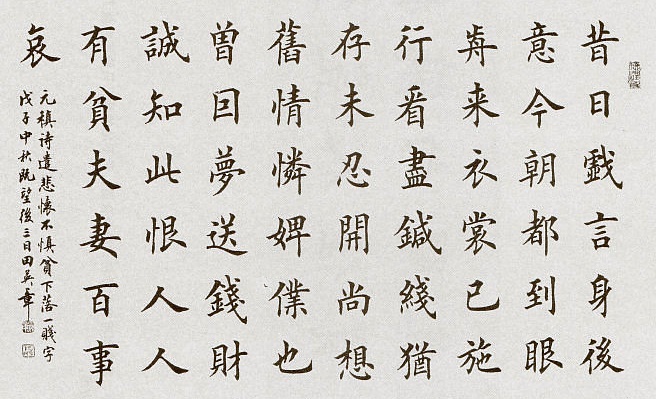 昔日戯言身後
意今朝都到眼
歬来衣裳已施
行看盡鍼綫猶
存未忍開尚想
舊情憐婢僕也
曾囙夢送錢財
誠知此恨人人
有貧夫妻百事
哀
元稹詩遣悲懷不慎貧下落一賤字
戊子中秋既望後三日田英章